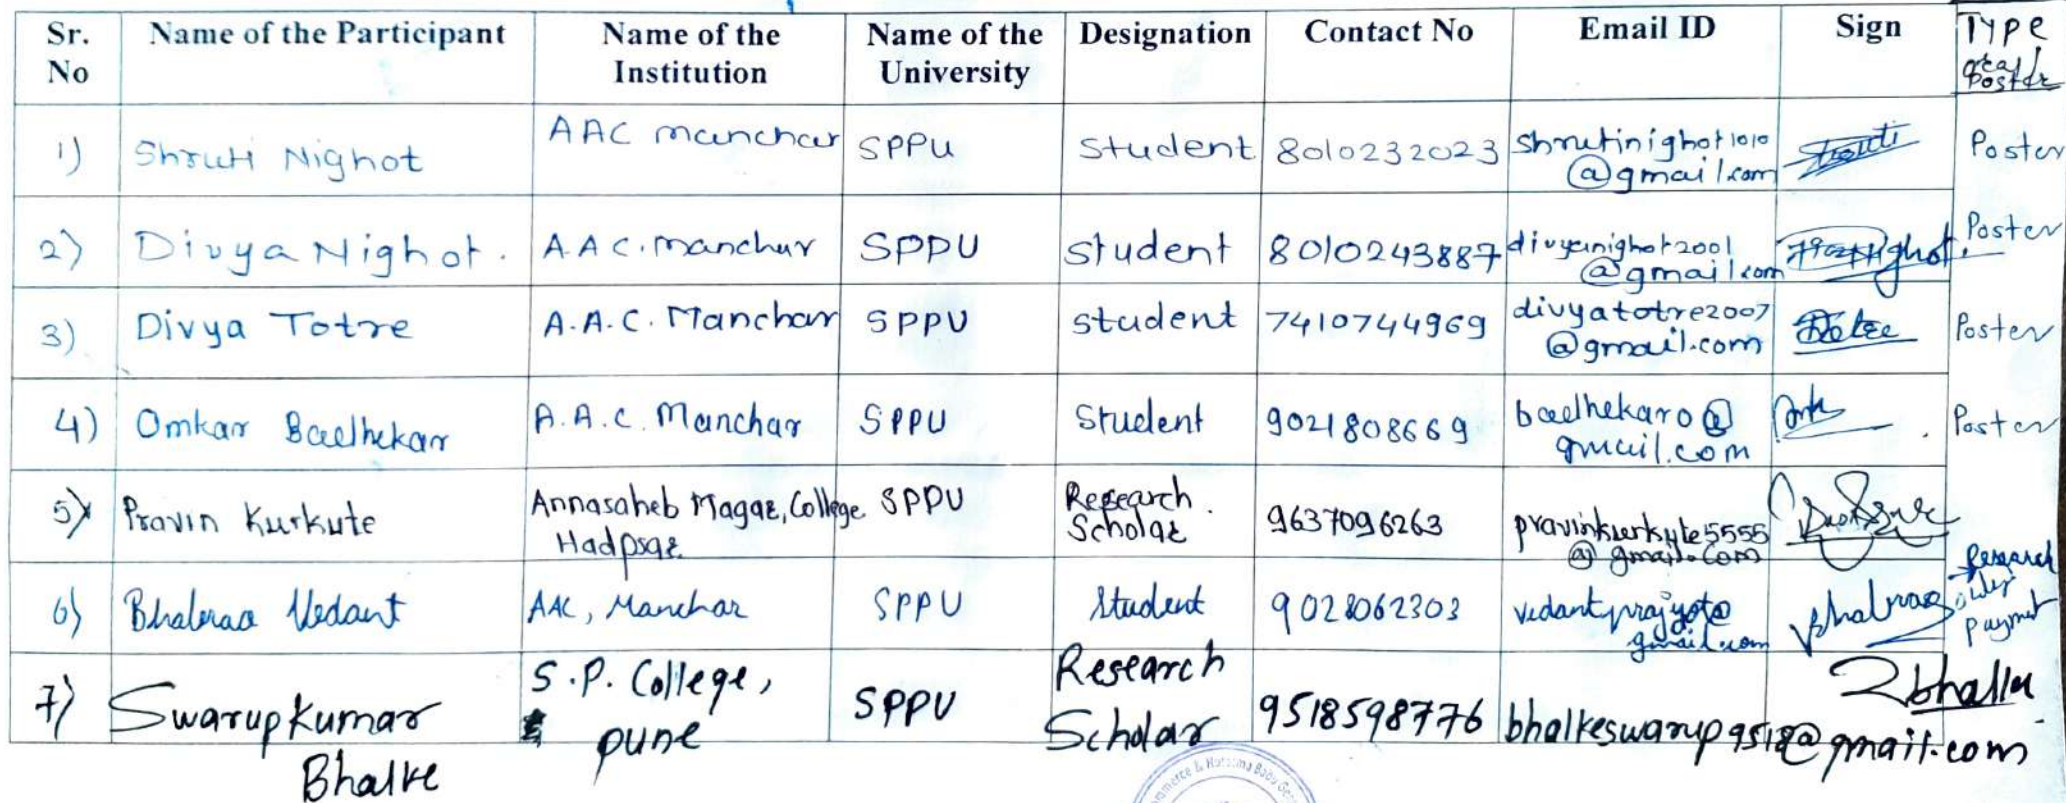 Sr. No | Name of the Participant | Name of the Institution | Name of the University | Designation | Contact No | Email ID | Sign | Type
1) | Shruti Nighot | AAC manchar | SPPU | Student | 8010232023 | shrutinighot1010@gmail.com | Poster
2) | Divya Nighot. | A.A.C. manchar | SPPU | student | 8010243887 | divyanighot2001@gmail.com | Poster
3) | Divya Totre | A.A.C. Manchar | SPPU | student | 7410744969 | divyatotre2007@gmail.com | Poster
4) | Omkar Baelhekar | A.A.C. Manchar | SPPU | Student | 9021808669 | baelhekaro@gmail.com | Poster
5) | Pravin Kurkute | Annasaheb Magar, College Hadpsar | SPPU | Research Scholar | 9637096263 | pravinkurkute5555@gmail.com
6) | Bhalerao Vedant | AAC, Manchar | SPPU | Student | 9028062303 | vedantprajyot@gmail.com | Research payment
7) | Swarupkumar Bhalke | S.P. College, pune | SPPU | Research Scholar | 9518598776 | bhalkeswarup9518@gmail.com